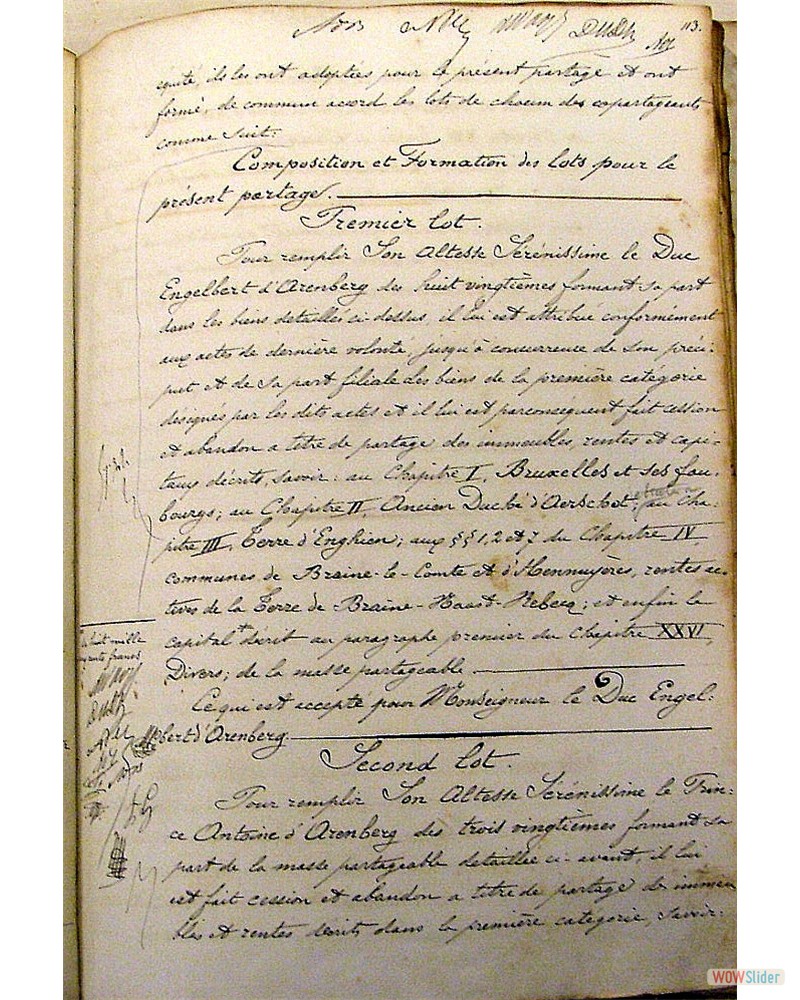 113.
équité, ils les ont adoptées pour le présent partage et ont
formé, de commun accord les lots de chacun des copartageants
comme suit:
Composition et Formation des lots pour le
présent partage.
Premier lot.
Pour remplir Son Altesse Sérénissime le Duc
Engelbert d'Arenberg des huit vingtièmes formant sa part
dans les biens détaillés ci-dessus, il lui est attribué conformément
aux actes de dernière volonté, jusqu'à concurrence de son préci-
put et de sa part filiale des biens de la première catégorie
désignés par les dits actes et il lui est parconséquent fait cession
et abandon a titre de partage des immeubles, rentes et capi-
taux décrits, savoir: au Chapitre I, Bruxelles et ses fau-
bourgs; au Chapitre II Ancien Duché d'Aerschot; au Cha-
pitre III, Terre d'Enghien; aux §§ 1, 2 et 7 du Chapitre IV,
communes de Braine-le-Comte et d'Hennuyères, rentes ac-
tives de la Terre de Braine-Haast-Rebecq; et enfin le
capital décrit au paragraphe premier du Chapitre XXVI,
huit mille
francs
Divers; de la masse partageable
Ce qui est accepté pour Monseigneur le Duc Engel-
bert d'Arenberg.
Second lot.
Pour remplir Son Altesse Sérénissime le Prin-
ce Antoine d'Arenberg des trois vingtièmes formant sa
part de la masse partageable détaillée ci-avant, il lui
est fait cession et abandon a titre de partage de immeu
bles et rentes décrits dans la première catégorie, savoir:
WOWSlider